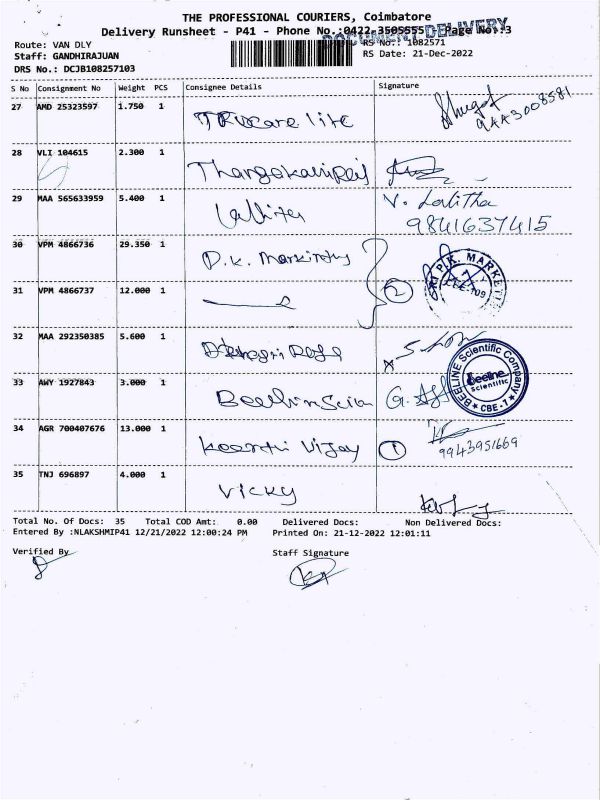 THE PROFESSIONAL COURIERS, Coimbatore
Delivery Runsheet - P41 - Phone No.:0422-3505555 Page No.:3
DOCUMENT DELIVERY
Route: VAN DLY
RS No.: 1082571
Staff: GANDHIRAJUAN
RS Date: 21-Dec-2022
DRS No.: DCJB108257103
S No Consignment No Weight PCS Consignee Details Signature
27 AMD 25323597 1.750 1 9443008581
28 VLI 104615 2.300 1
29 MAA 565633959 5.400 1 V. Lalitha
9841637415
30 VPM 4866736 29.350 1 P.K.
31 VPM 4866737 12.000 1 2
P.K. MARKETI
32 MAA 292350385 5.600 1
33 AWY 1927843 3.000 1
BEELINE Scientific Company
Beeline
Scientific
CBE - 7
34 AGR 700407676 13.000 1 Vijay 1
9943951669
35 TNJ 696897 4.000 1 Vicky
Total No. Of Docs: 35 Total COD Amt: 0.00 Delivered Docs: Non Delivered Docs:
Entered By :NLAKSHMIP41 12/21/2022 12:00:24 PM Printed On: 21-12-2022 12:01:11
Verified By Staff Signature